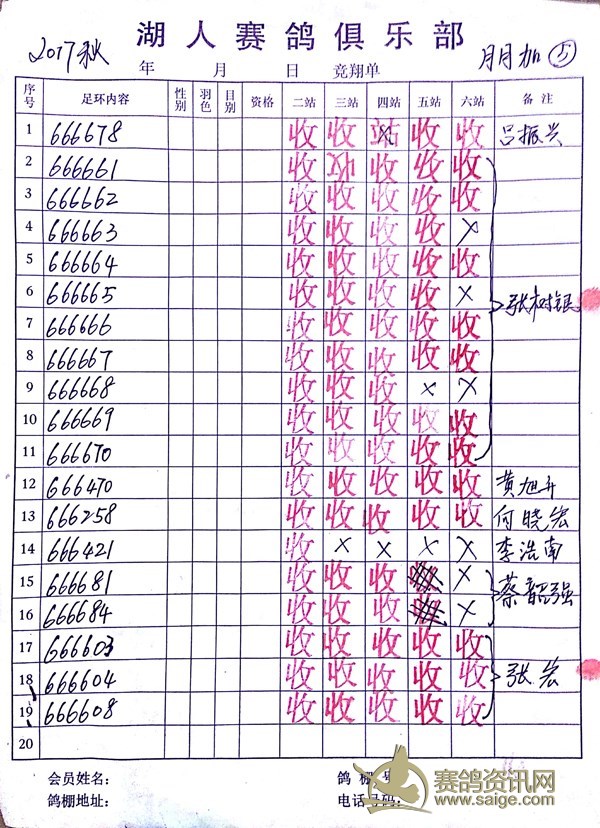 湖人赛鸽俱乐部
2017秋 年 月 日 竞翔单 月月加⑤
序号 足环内容 性别 羽色 目别 资格 二站 三站 四站 五站 六站 备注
1 666678 收 收 站 收 收 吕振兴
2 666661 收 收 收 收 收
3 666662 收 收 收 收 收
4 666663 收 收 收 收 ×
5 666664 收 收 收 收 收
6 666665 收 收 收 收 × 张树银
7 666666 收 收 收 收 收
8 666667 收 收 收 收 收
9 666668 收 收 收 × ×
10 666669 收 收 收 收 收
11 666670 收 收 收 收 收
12 666470 收 收 收 收 收 黄旭升
13 666258 收 收 收 收 收 何晓宏
14 666421 收 × × × × 李浩南
15 666681 收 收 收 × 蔡韶强
16 666684 收 收 收 ×
17 666603 收 收 收 收 收
18 666604 收 收 收 收 收 张宏
19 666608 收 收 收 收 收
20
会员姓名: 鸽棚号
鸽棚地址: 电话号码:
赛鸽资讯网
www.saige.com